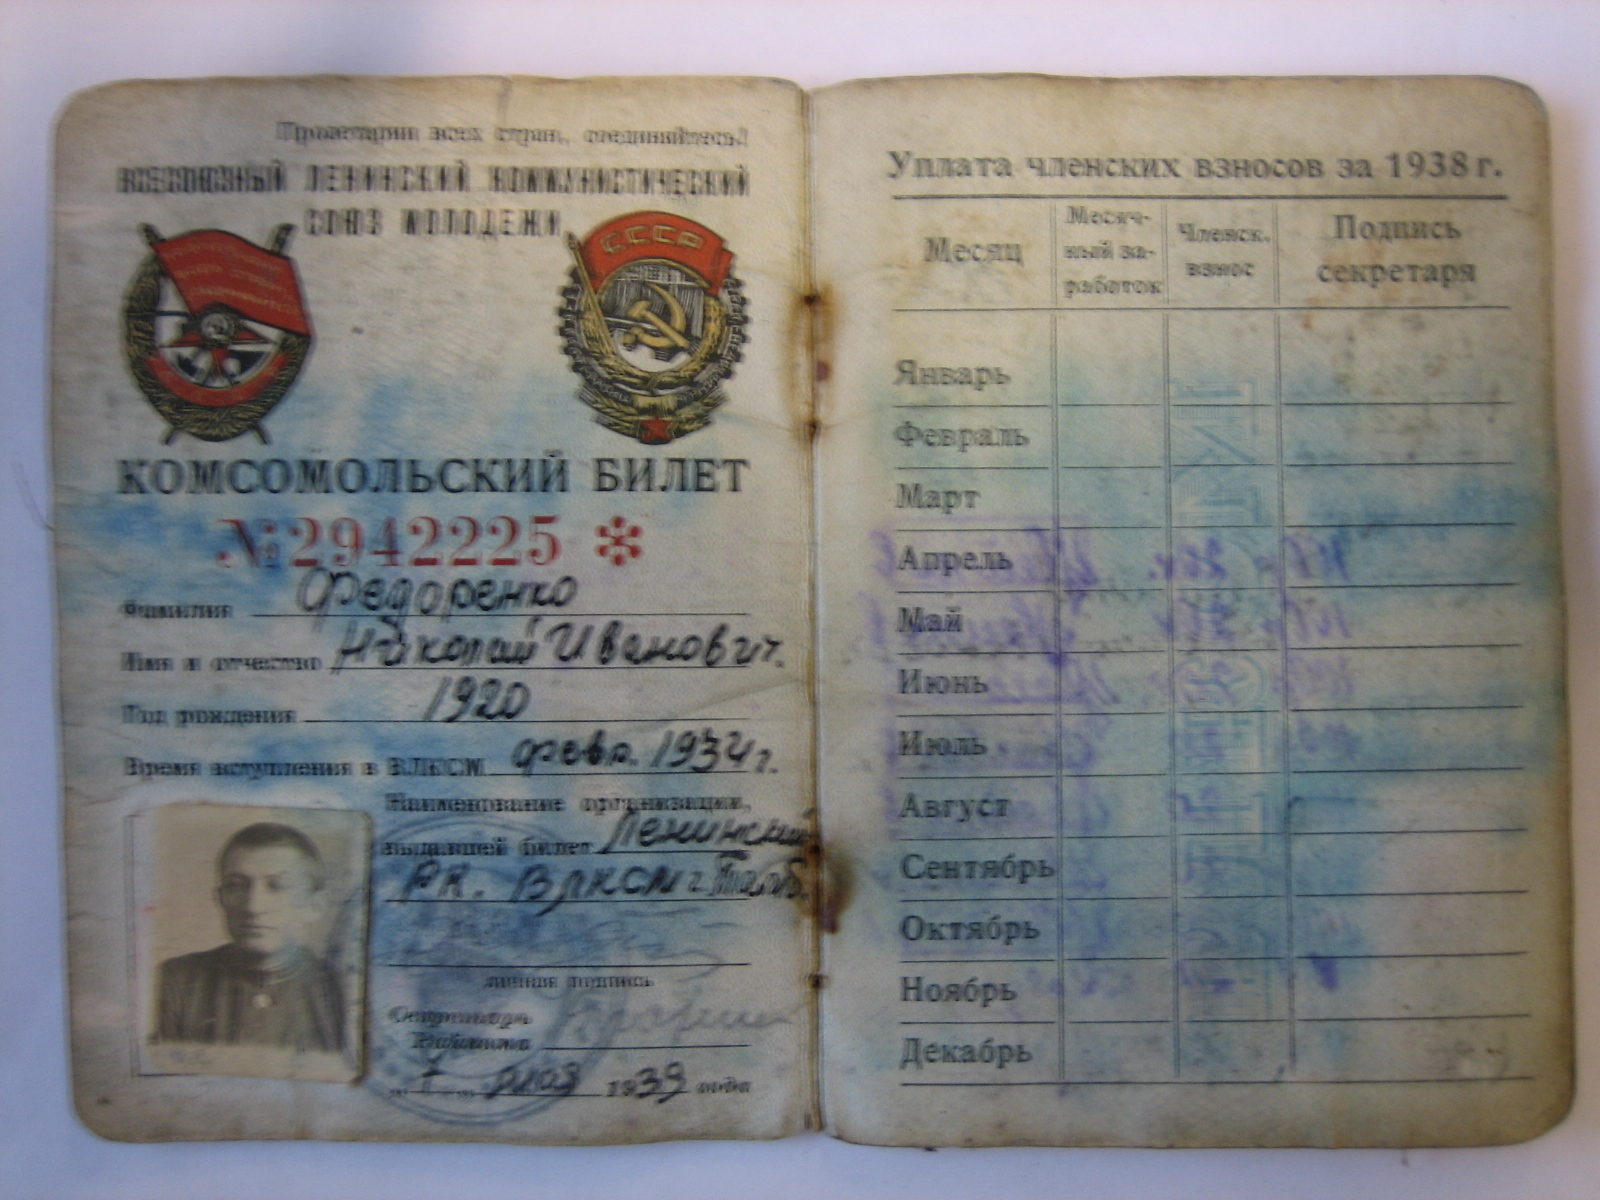 Пролетарии всех стран, соединяйтесь!
ВСЕСОЮЗНЫЙ ЛЕНИНСКИЙ КОММУНИСТИЧЕСКИЙ
СОЮЗ МОЛОДЕЖИ
СССР
КОМСОМОЛЬСКИЙ БИЛЕТ
№2942225 *
Фамилия Федоренко
Имя и отчество Николай Иванович.
Год рождения 1920
Время вступления в ВЛКСМ февр. 1934 г.
Наименование организации,
выдавшей билет Ленинский
РК. ВЛКСМ г. Тамб.
личная подпись
Секретарь
Райкома
1939 года
Уплата членских взносов за 1938 г.
Месяц Месяч-ный за-работок Членск. взнос Подпись секретаря
Январь
Февраль
Март
Апрель
Май
Июнь
Июль
Август
Сентябрь
Октябрь
Ноябрь
Декабрь